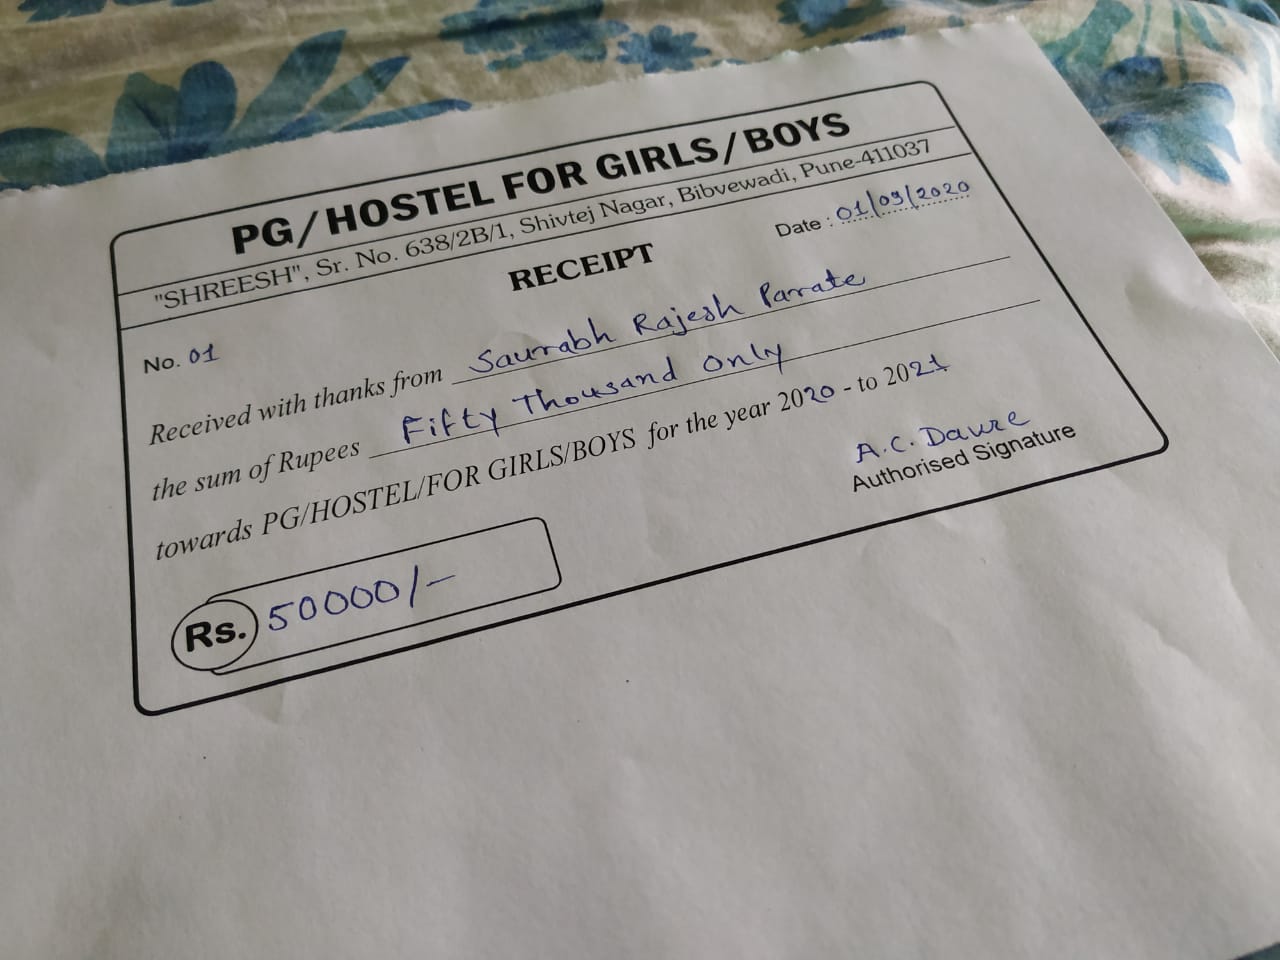 PG/HOSTEL FOR GIRLS/BOYS
"SHREESH", Sr. No. 638/2B/1, Shivtej Nagar, Bibvewadi, Pune-411037
RECEIPT
Date : 01/09/2020
No. 01
Received with thanks from Saurabh Rajesh Parate
the sum of Rupees Fifty Thousand Only
towards PG/HOSTEL/FOR GIRLS/BOYS for the year 2020 - to 2021
A.C. Davre
Authorised Signature
Rs. 50000/-